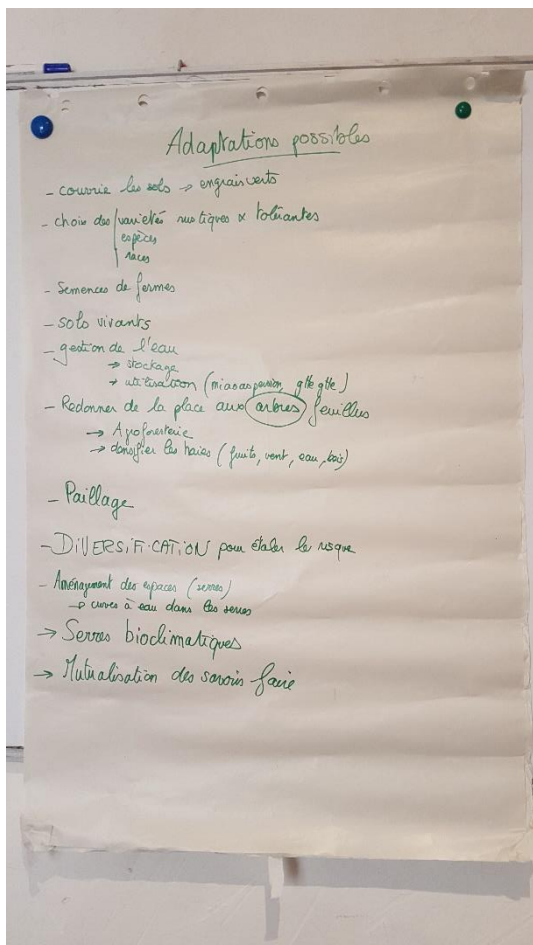 Adaptations possibles
- couvrir les sols → engrais verts
- choix des variétés rustiques & tolérantes
espèces
races
- Semences de fermes
- sols vivants
- gestion de l'eau
→ stockage
→ utilisation (microaspersion, gtte gtte)
- Redonner de la place aux arbres feuillus
→ Agroforesterie
→ densifier les haies (fruits, vent, eau, bois)
- Paillage
- DIVERSIFICATION pour étaler le risque
- Aménagement des espaces (serres)
→ cuves à eau dans les serres
→ Serres bioclimatiques
→ Mutualisation des savoirs faire